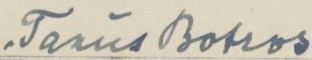 Tanús Botros